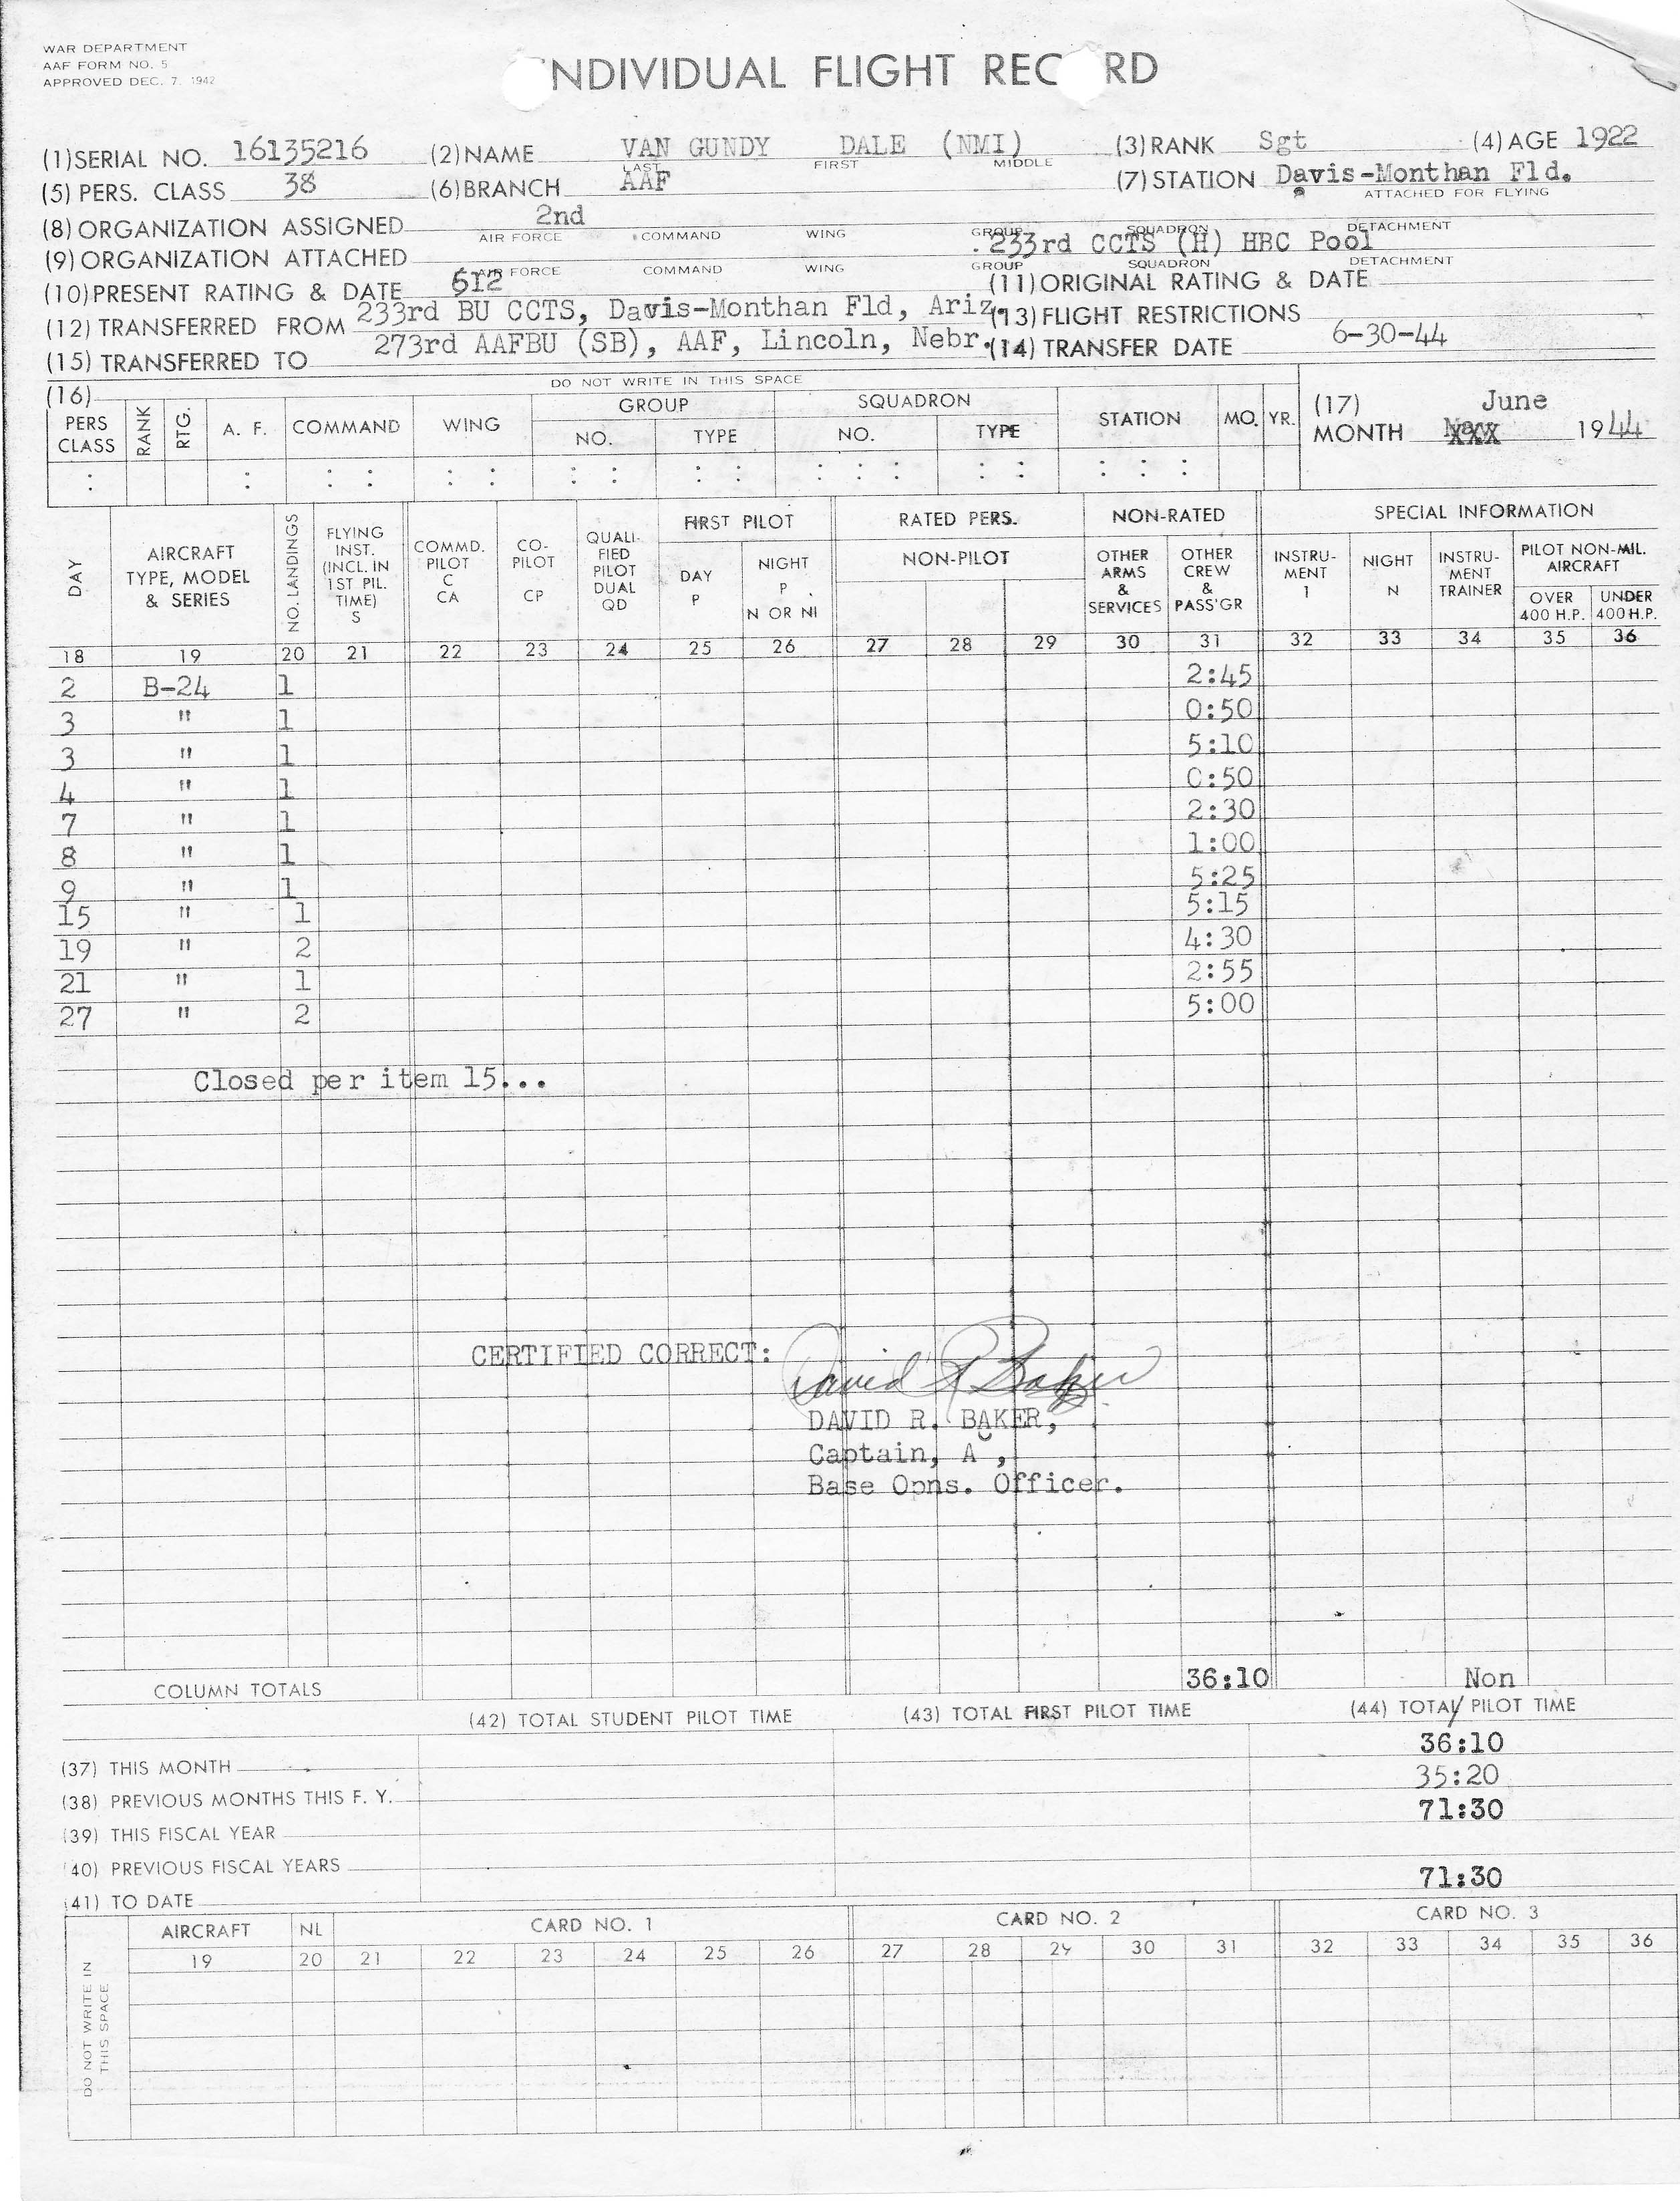 WAR DEPARTMENT
AAF FORM NO. 5
APPROVED DEC. 7, 1942
INDIVIDUAL FLIGHT RECORD
(1) SERIAL NO. 16135216 (2) NAME VAN GUNDY DALE (NMI) (3) RANK Sgt (4) AGE 1922
LAST FIRST MIDDLE
(5) PERS. CLASS 38 (6) BRANCH AAF (7) STATION Davis-Monthan Fld.
ATTACHED FOR FLYING
(8) ORGANIZATION ASSIGNED 2nd
AIR FORCE COMMAND WING GROUP SQUADRON DETACHMENT
(9) ORGANIZATION ATTACHED 233rd CCTS (H) HBC Pool
AIR FORCE COMMAND WING GROUP SQUADRON DETACHMENT
(10) PRESENT RATING & DATE 612 (11) ORIGINAL RATING & DATE
(12) TRANSFERRED FROM 233rd BU CCTS, Davis-Monthan Fld, Ariz. (13) FLIGHT RESTRICTIONS
(15) TRANSFERRED TO 273rd AAFBU (SB), AAF, Lincoln, Nebr. (14) TRANSFER DATE 6-30-44
(16) DO NOT WRITE IN THIS SPACE
PERS CLASS RANK RTG. A. F. COMMAND WING GROUP NO. TYPE SQUADRON NO. TYPE STATION MO. YR.
(17) MONTH June 1944
DAY AIRCRAFT TYPE, MODEL & SERIES NO. LANDINGS FLYING INST. (INCL. IN 1ST PIL. TIME) S COMMD. PILOT C CA CO-PILOT CP QUALI-FIED PILOT DUAL QD FIRST PILOT DAY P NIGHT P N OR NI RATED PERS. NON-PILOT NON-RATED OTHER ARMS & SERVICES OTHER CREW & PASS'GR SPECIAL INFORMATION INSTRU-MENT I NIGHT N INSTRU-MENT TRAINER PILOT NON-MIL. AIRCRAFT OVER 400 H.P. UNDER 400 H.P.
18 19 20 21 22 23 24 25 26 27 28 29 30 31 32 33 34 35 36
2 B-24 1 2:45
3 " 1 0:50
3 " 1 5:10
4 " 1 0:50
7 " 1 2:30
8 " 1 1:00
9 " 1 5:25
15 " 1 5:15
19 " 2 4:30
21 " 1 2:55
27 " 2 5:00
Closed per item 15...
CERTIFIED CORRECT: David R Baker
DAVID R. BAKER,
Captain, A ,
Base Opns. Officer.
COLUMN TOTALS 36:10 Non
(42) TOTAL STUDENT PILOT TIME (43) TOTAL FIRST PILOT TIME (44) TOTAL PILOT TIME
(37) THIS MONTH 36:10
(38) PREVIOUS MONTHS THIS F. Y. 35:20
(39) THIS FISCAL YEAR 71:30
(40) PREVIOUS FISCAL YEARS
(41) TO DATE 71:30
DO NOT WRITE IN THIS SPACE
AIRCRAFT NL CARD NO. 1 CARD NO. 2 CARD NO. 3
19 20 21 22 23 24 25 26 27 28 29 30 31 32 33 34 35 36